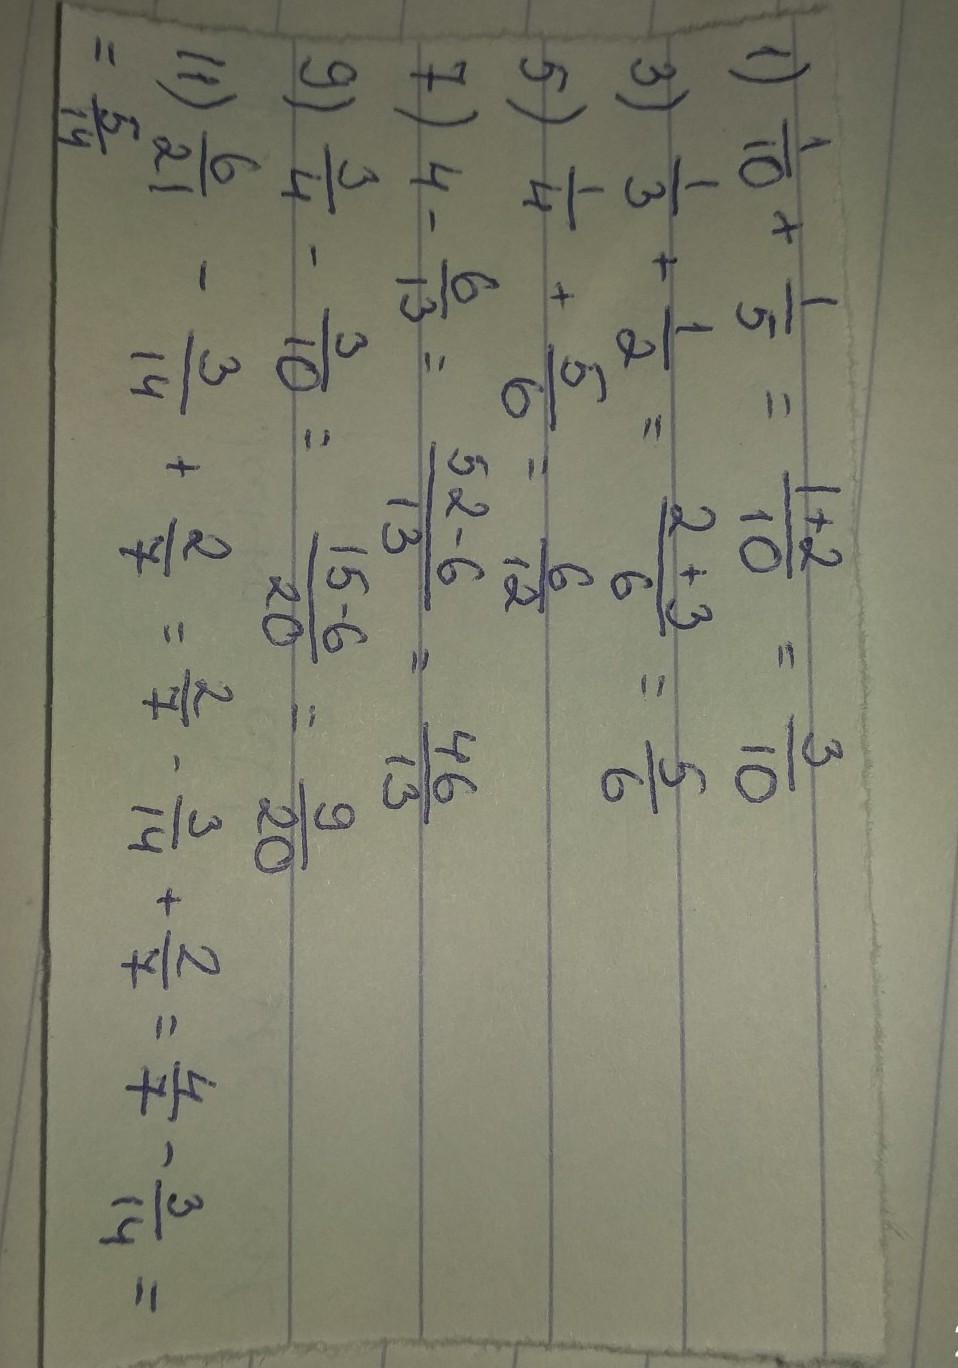 1) 1/10 + 1/5 = 1+2/10 = 3/10
3) 1/3 + 1/2 = 2+3/6 = 5/6
5) 1/4 + 5/6 = 6/12
7) 4 - 6/13 = 52-6/13 = 46/13
9) 3/4 - 3/10 = 15-6/20 = 9/20
11) 6/21 - 3/14 + 2/7 = 2/7 - 3/14 + 2/7 = 4/7 - 3/14 =
= 5/14